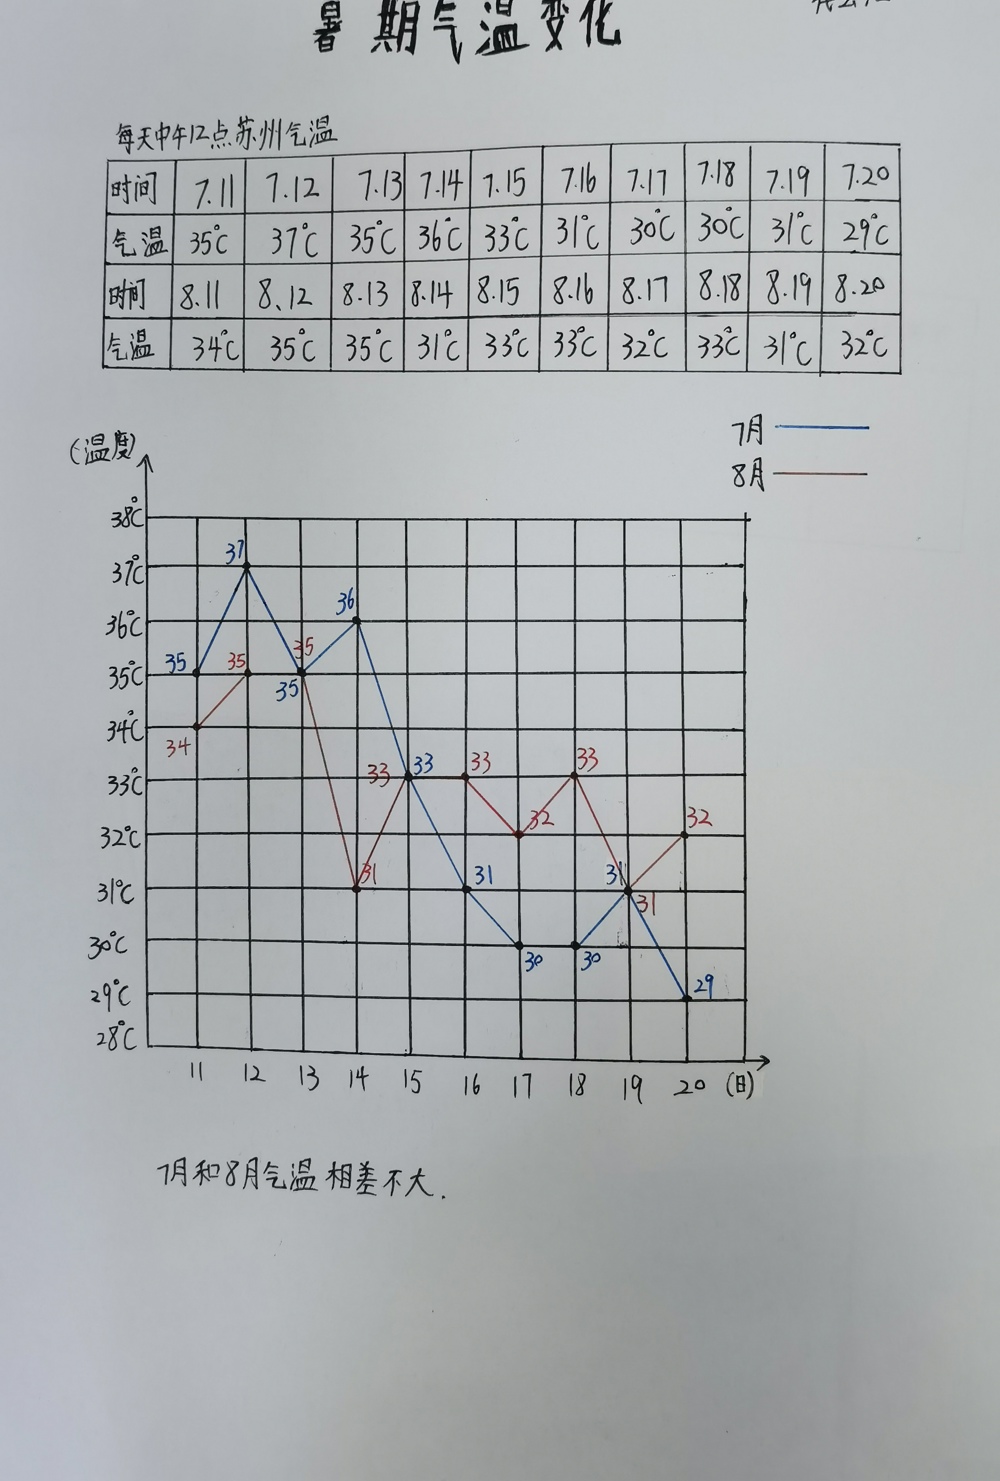 暑期气温变化
每天中午12点苏州气温
时间 7.11 7.12 7.13 7.14 7.15 7.16 7.17 7.18 7.19 7.20
气温 35°C 37°C 35°C 36°C 33°C 31°C 30°C 30°C 31°C 29°C
时间 8.11 8.12 8.13 8.14 8.15 8.16 8.17 8.18 8.19 8.20
气温 34°C 35°C 35°C 31°C 33°C 33°C 32°C 33°C 31°C 32°C
7月
8月
(温度)
38°C
37°C 37
36°C 36
35°C 35 35 35 35
34°C 34
33°C 33 33 33 33
32°C 32 32
31°C 31 31 31 31
30°C 30 30
29°C 29
28°C
11 12 13 14 15 16 17 18 19 20 (日)
7月和8月气温相差不大.